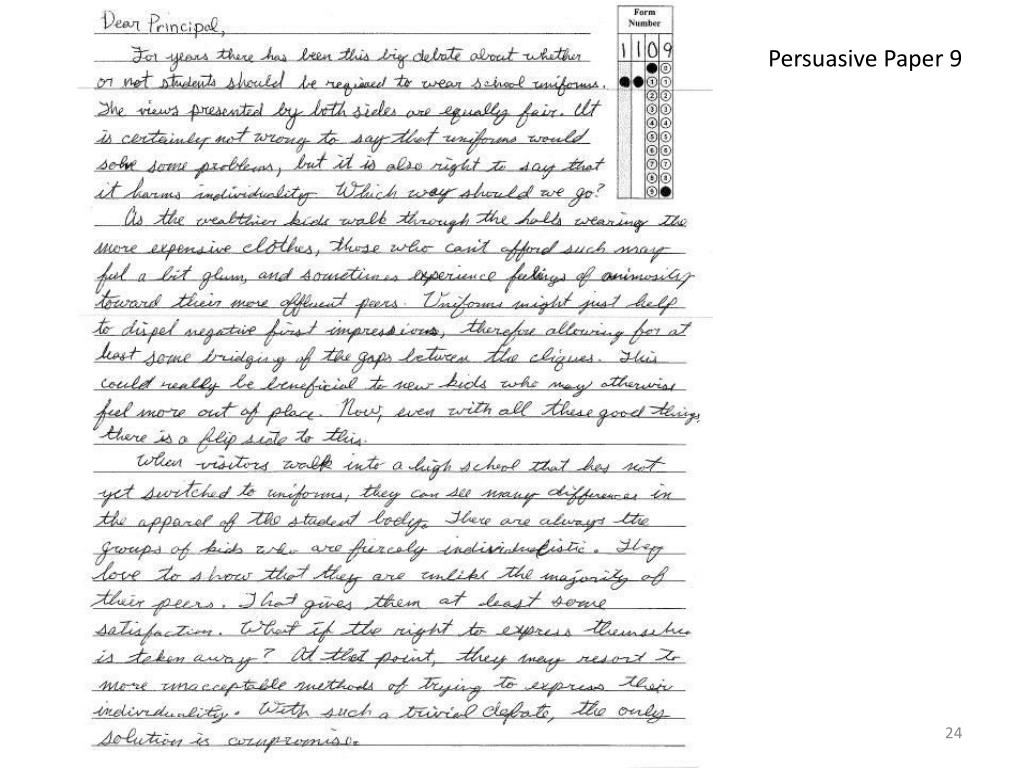 Dear Principal,
Form
Number
1109
Persuasive Paper 9
For years there has been this big debate about whether
or not students should be required to wear school uniforms.
The views presented by both sides are equally fair. It
is certainley not wrong to say that uniforms would
solve some problems, but it is also right to say that
it harms individuality. Which way should we go?
As the wealthier kids walk through the halls wearing the
more expensive clothes, those who can't afford such may
feel a bit glum, and sometimes experience feelings of animosity
toward their more affluent peers. Uniforms might just help
to dispel negative first impressions, therefore allowing for at
least some bridging of the gaps between the cliques. This
could really be beneficial to new kids who may otherwise
feel more out of place. Now, even with all these good things,
there is a flip side to this.
When visitors walk into a high school that has not
yet switched to uniforms, they can see many differences in
the apparel of the student body. There are always the
groups of kids who are fiercely individualistic. They
love to show that they are unlike the majority of
their peers. That gives them at least some
satisfaction. What if the right to express themselves
is taken away? At that point, they may resort to
more unacceptable methods of trying to express their
individuality. With such a trivial debate, the only
solution is compromise.
24